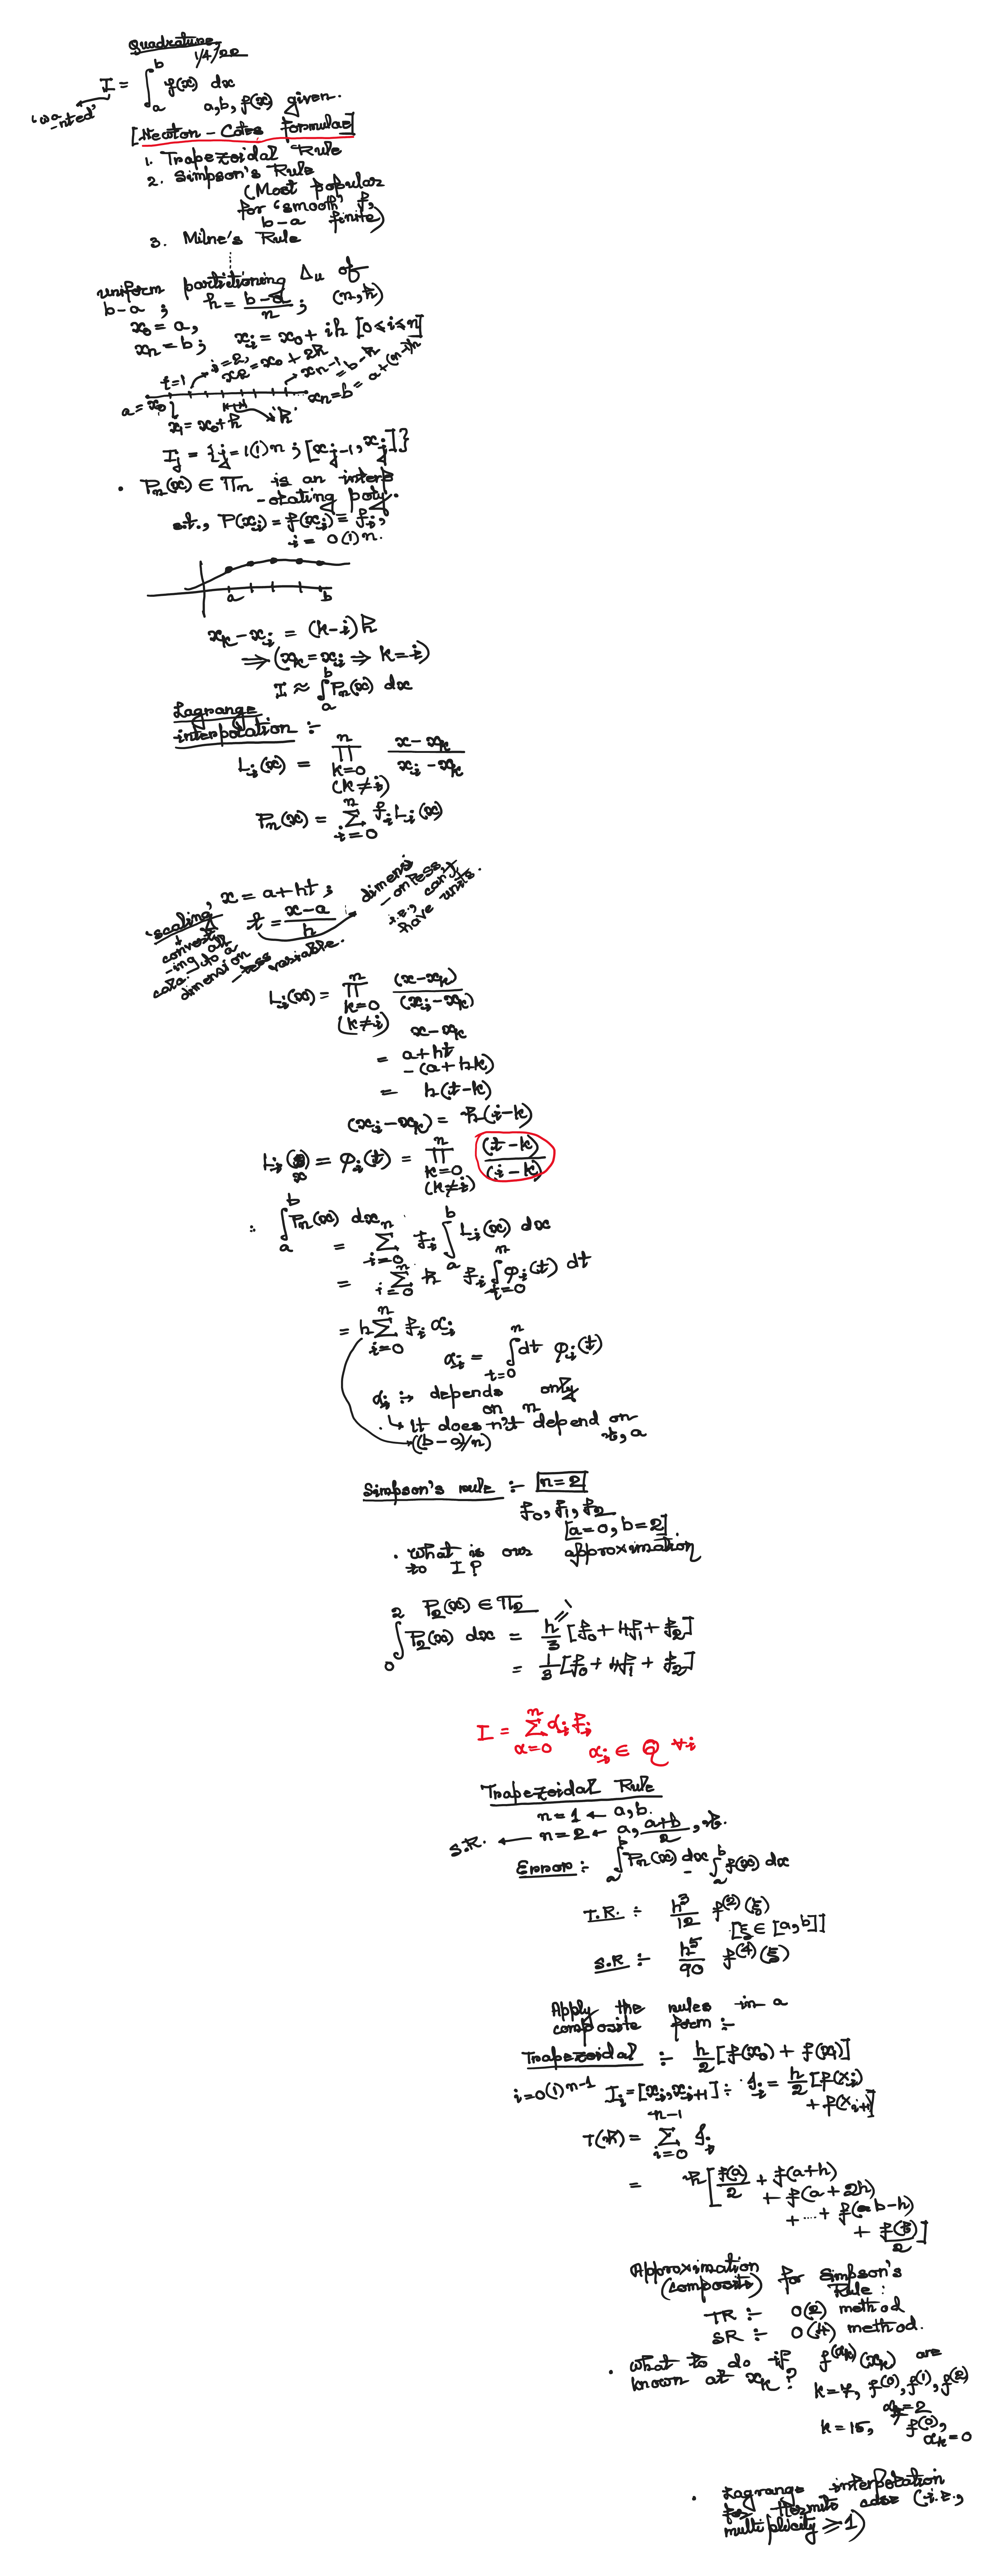 Quadrature
1/4/22
I = ∫_a^b f(x) dx
'wa-nted'
a, b, f(x) given.
[Newton - Cotes formulae]
1. Trapezoidal Rule
2. Simpson's Rule
(Most popular
for 'smooth' f,
b-a finite)
3. Milne's Rule
uniform partitioning Δu of
b-a ; h = (b-a)/n ; (n, h)
x0 = a,
xn = b ; xi = x0 + ih [0 ≤ i ≤ n]
i=1 i=2, x2 = x0 + 2h
xn-1 = b-h = a+(n-1)h
a = x0 'h' xn = b
x1 = x0 + h
Ij = {j = 1(1)n ; [xj-1, xj]}
· Pn(x) ∈ Πn is an interp
-olating poly.
s.t., P(xi) = f(xi) = fi,
i = 0(1)n.
a b
xk - xi = (k-i)h
⇒ (xk = xi ⇒ k = i)
I ≈ ∫_a^b Pn(x) dx
Lagrange
interpolation :-
Li(x) = ∏_{k=0 (k≠i)}^n (x - xk)/(xi - xk)
Pn(x) = Σ_{i=0}^n fi Li(x)
'scaling, x = a + ht ;
t = (x-a)/h
dimensi
-onless
i.e., can't
have units.
converti
-ing all
data to a
dimension
-less variable.
Li(x) = ∏_{k=0 (k≠i)}^n (x - xk)/(xi - xk)
x - xk
= a + ht
- (a + hk)
= h(t - k)
(xi - xk) = h(i - k)
Li(x) = φi(t) = ∏_{k=0 (k≠i)}^n (t - k)/(i - k)
: ∫_a^b Pn(x) dx
= Σ_{i=0}^n fi ∫_a^b Li(x) dx
= Σ_{i=0}^n h fi ∫_{t=0}^n φi(t) dt
= h Σ_{i=0}^n fi αi
αi = ∫_{t=0}^n dt φi(t)
αi :→ depends only
on n
↳ It does n't depend on
, a
((b-a)/n)
Simpson's rule :- [n=2]
f0, f1, f2
[a=0, b=2].
· What is our approximation
to I?
P2(x) ∈ Π2
∫_0^2 P2(x) dx = h/3 [f0 + 4f1 + f2]
= 1/3 [f0 + 4f1 + f2]
I = Σ_{α=0}^n αi fi
αi ∈ Q ∀i
Trapezoidal Rule
n = 1 ← a, b.
S.R. ← n = 2 ← a, (a+b)/2, b.
Error :- ∫_a^b Pn(x) dx - ∫_a^b f(x) dx
T.R. :- h^3/12 f^(2)(ξ)
[ξ ∈ [a,b]]
S.R :- h^5/90 f^(4)(ξ)
Apply the rules in a
composite form :-
Trapezoidal :- h/2 [f(x0) + f(x1)]
i=0(1)n-1 Ii = [xi, xi+1] :- Ii = h/2 [f(xi)
+ f(xi+1)]
T(h) = Σ_{i=0}^{n-1} Ii
= h [f(a)/2 + f(a+h)
+ f(a + 2h)
+ ... + f(b-h)
+ f(b)/2]
Approximation
(composite) for Simpson's
Rule :
TR :- O(2) method
SR :- O(4) method.
· What to do if f^(αk)(xk) are
known at xk?
k=7, f^(0), f^(1), f^(2)
α7=2
k = 15, f^(0),
αk = 0
· Lagrange interpolation
for Hermite case (i.e.,
multiplicity ≥ 1)